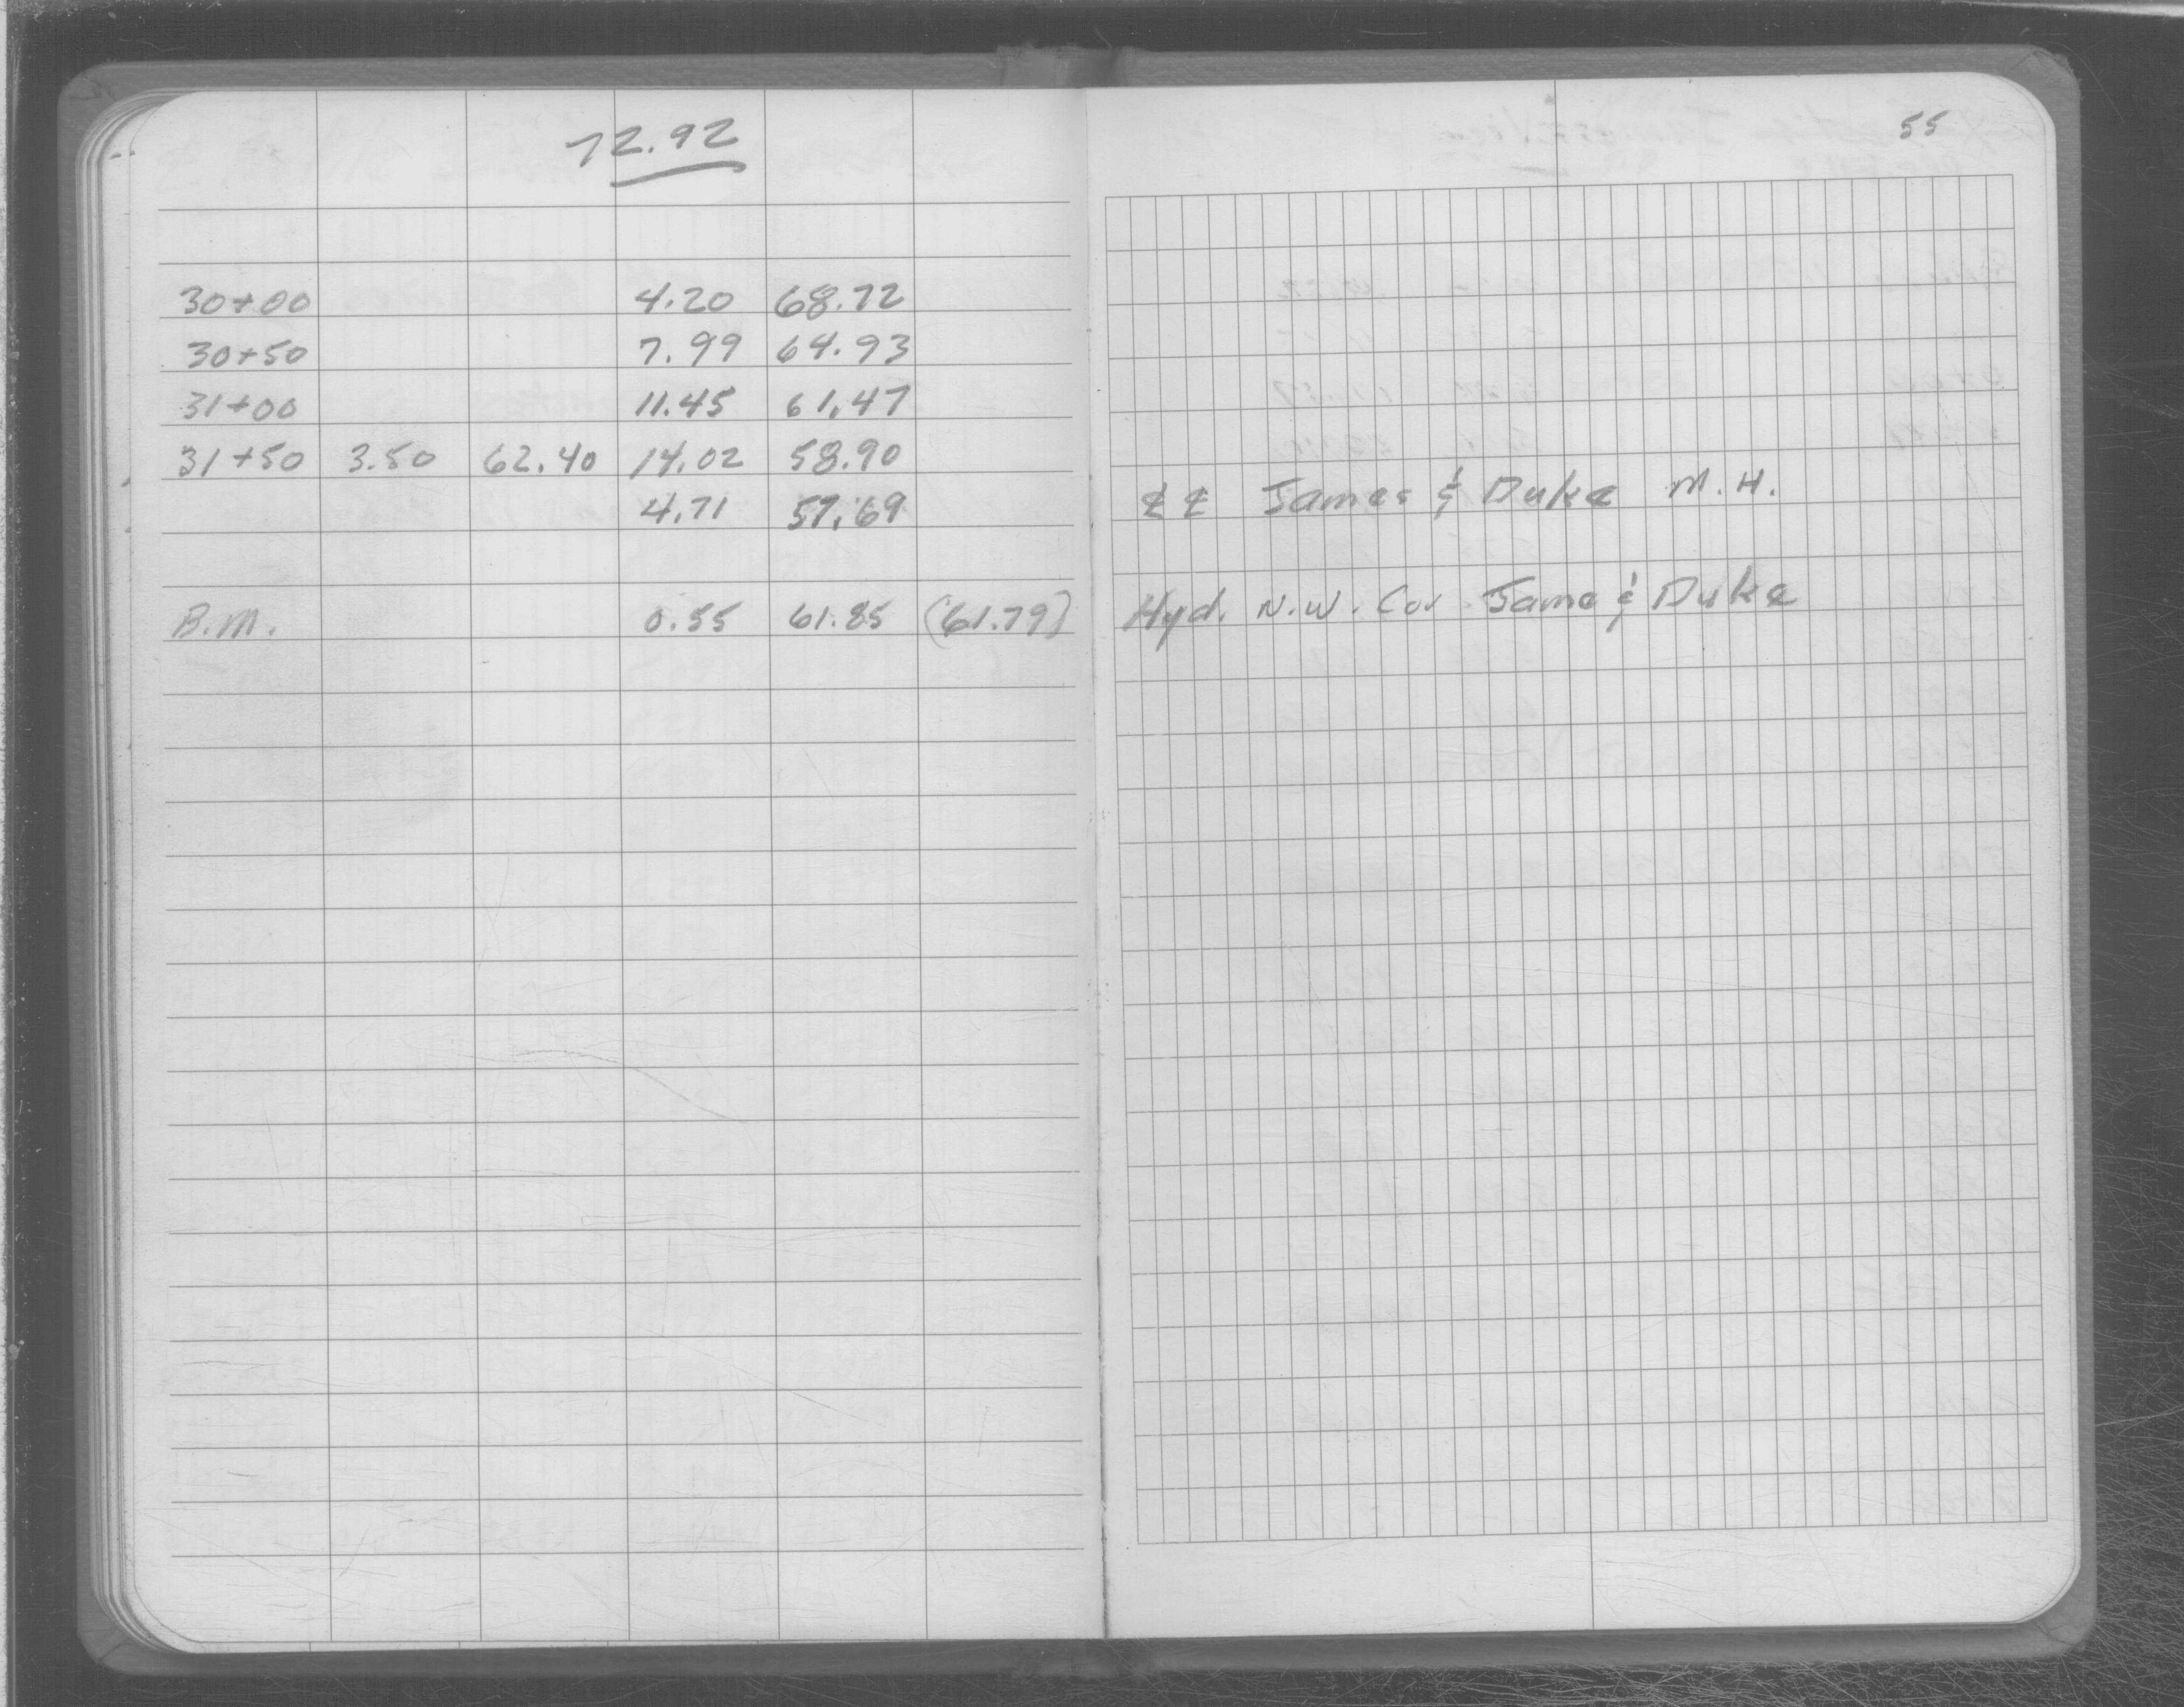 55
72.92
30+00 4.20 68.72
30+50 7.99 64.93
31+00 11.45 61.47
31+50 3.50 62.40 14.02 58.90
4.71 57.69 ℄ ℄ James & Duke M.H.
B.M. 0.55 61.85 (61.79) Hyd. N.W. Cor. Jame & Duke